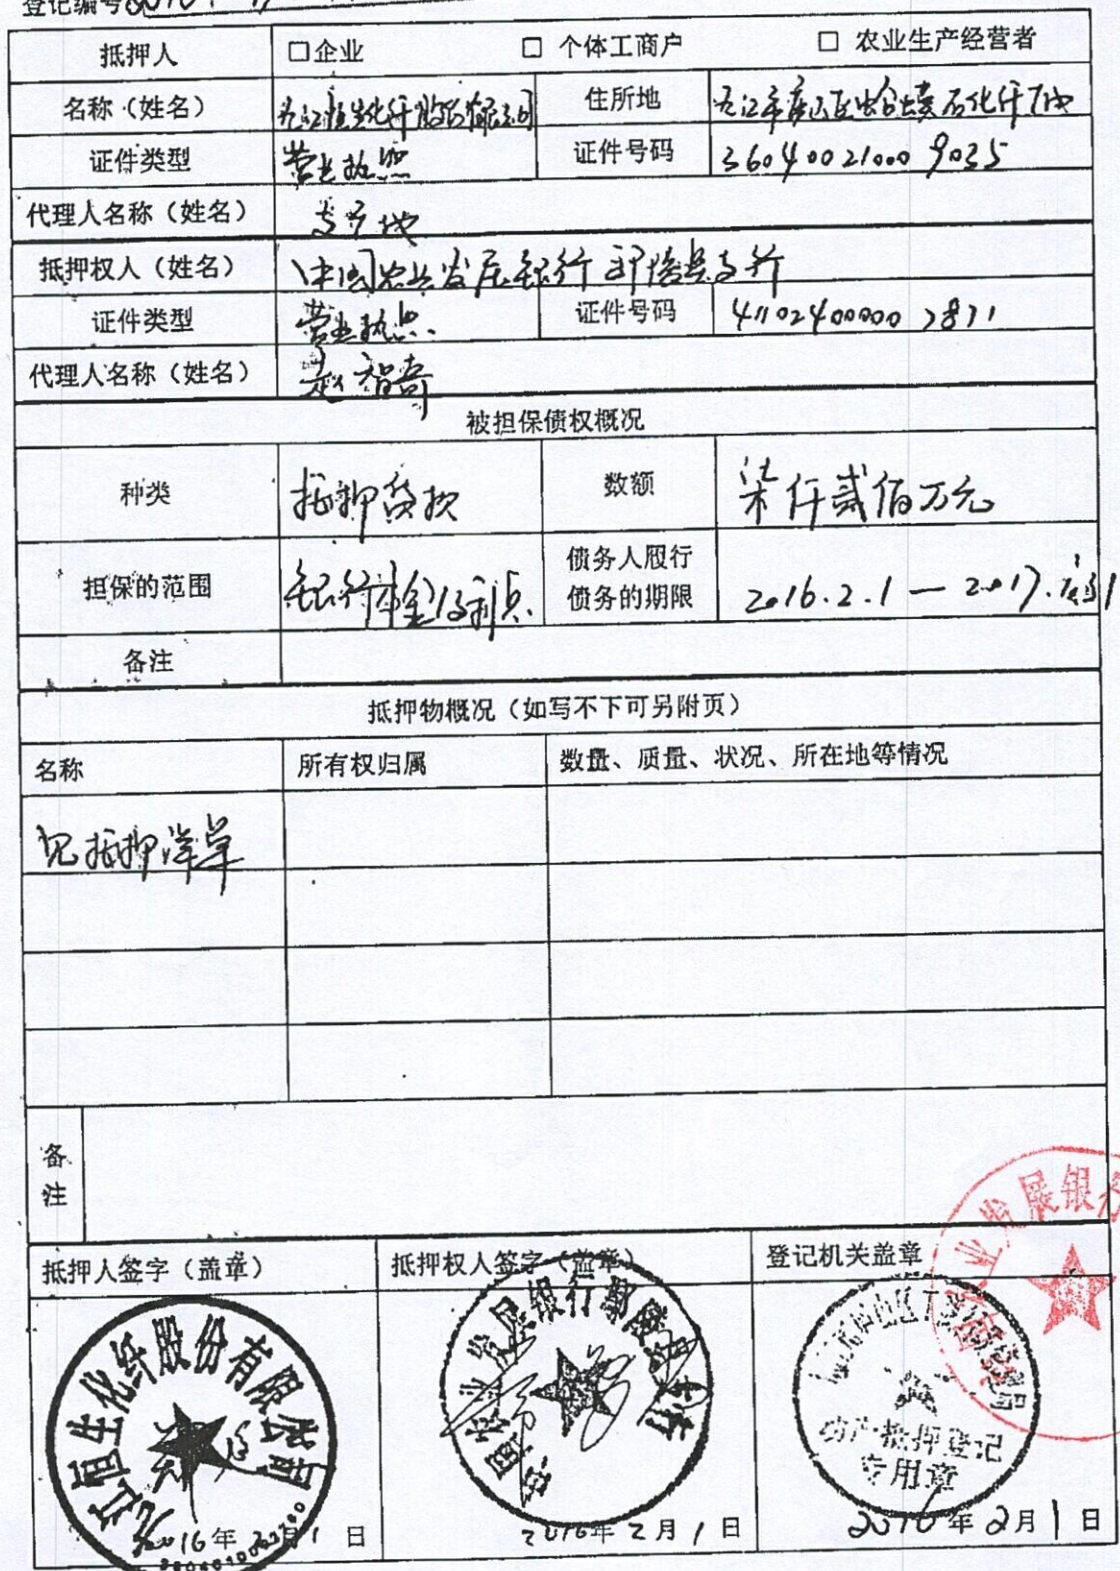 登记编号
抵押人 □企业 □ 个体工商户 □ 农业生产经营者
名称（姓名） 九江恒生化纤股份有限公司 住所地
证件类型 营业执照 证件号码 360400210009035
代理人名称（姓名）
抵押权人（姓名） 中国农业发展银行鄢陵县支行
证件类型 营业执照 证件号码 411024000007871
代理人名称（姓名） 赵智奇
被担保债权概况
种类 抵押贷款 数额 柒仟贰佰万元
担保的范围 银行本金及利息 债务人履行
债务的期限 2016.2.1 — 2017.
备注
抵押物概况（如写不下可另附页）
名称 所有权归属 数量、质量、状况、所在地等情况
见抵押详单
备
注
抵押人签字（盖章） 抵押权人签字（盖章） 登记机关盖章
九江恒生化纤股份有限公司
中国农业发展银行鄢陵县支行
动产抵押登记
专用章
业发展银行
2016年 月1日 2016年2月1日 2016年2月1日